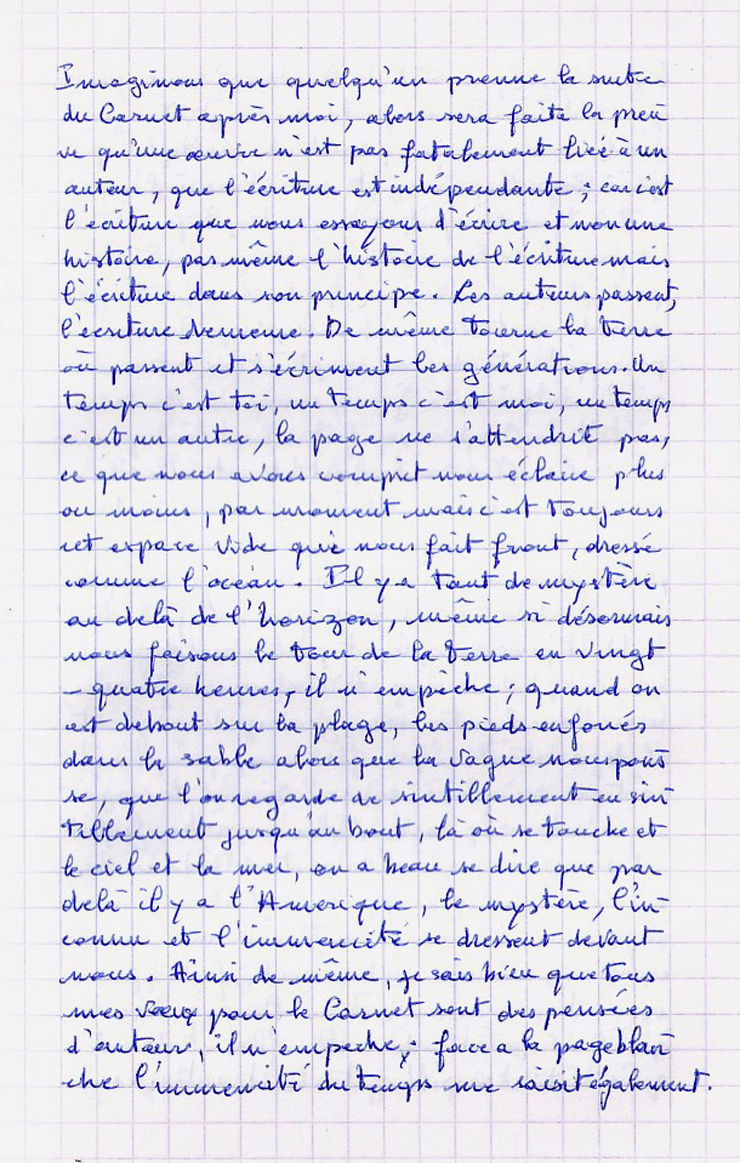 Imaginons que quelqu'un prenne la suite
du Carnet après moi, alors sera faite la preu
ve qu'une œuvre n'est pas fatalement liée à un
auteur, que l'écriture est indépendante ; car c'est
l'écriture que nous essayons d'écrire et non une
histoire, pas même l'histoire de l'écriture mais
l'écriture dans son principe. Les auteurs passent,
l'écriture demeure. De même tourne la terre
où passent et s'écriment les générations. Un
temps c'est toi, un temps c'est moi, un temps
c'est un autre, la page ne s'attendrit pas,
ce que nous avons compris nous éclaire plus
ou moins, par moment mais c'est toujours
cet espace vide qui nous fait front, dressé
comme l'océan. Il y a tant de mystère
au delà de l'horizon, même si désormais
nous faisons le tour de la terre en vingt
-quatre heures, il n'empêche ; quand on
est debout sur la plage, les pieds enfoués
dans le sable alors que la vague nous pous
se, que l'on regarde de sintillement en sin
tillement jusqu'au bout, là où se touche et
le ciel et la mer, on a beau se dire que par
delà il y a l'Amérique, le mystère, l'in-
connu et l'immencité se dressent devant
nous. Ainsi de même, je sais bien que tous
mes vœux pour le Carnet sont des pensées
d'auteur, il n'empeche ; face a la page blan
che l'immencité du temps me saisit également.